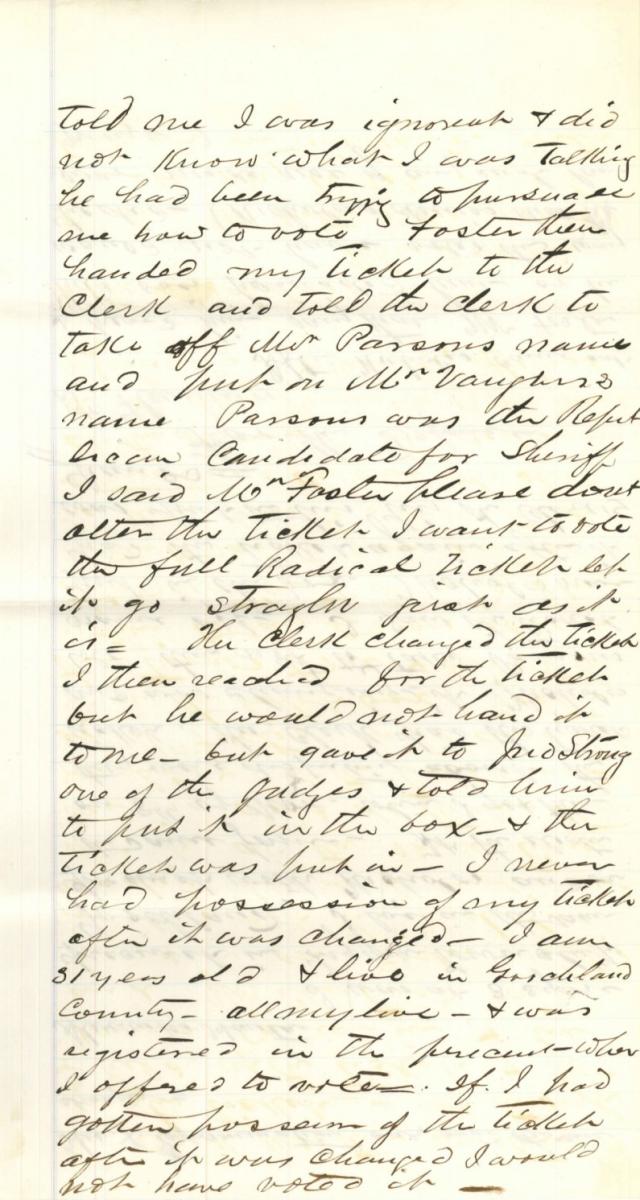 told me I was ignorant & did
not Know what I was Talking
he had been trying to pursuade
me how to vote Foster then
handed my ticket to the
Clerk and told the clerk to
take off Mr Parsons name
and put on Mr Vaughns
name Parsons was the Repub
lican Candidate for Sheriff
I said Mr Foster please dont
alter the ticket I want to vote
the full Radical Ticket let
it go straght jist as it
is = The Clerk changed the ticket
I then reached for the ticket
but he would not hand it
to me - but gave it to Jno Strong
one of the Judges & told him
to put it in the box - & the
ticket was put in - I never
had possession of my ticket
after it was changed - I am
31 years old & live in Goochland
County - all my live - & was
registered in the precent - wher
I offered to vote = . If I had
gotten possesion of the ticket
after it was changed I would
not have voted it -